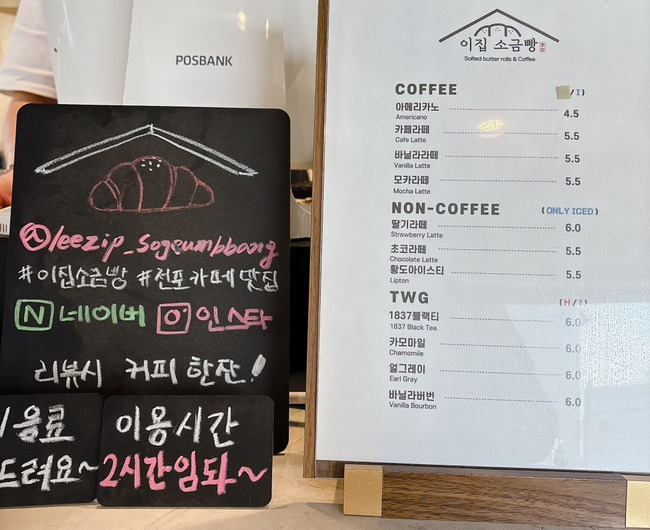 POSBANK
@leezip_sogeumbbang
#이집소금빵 #전포카페맛집
N 네이버 인스타
리뷰시 커피 한잔!
음료
드려요~
이용시간
2시간임돠~
이집 소금빵
Salted butter rolls & Coffee
COFFEE /I)
아메리카노 4.5
Americano
카페라떼 5.5
Cafe Latte
바닐라라떼 5.5
Vanilla Latte
모카라떼 5.5
Mocha Latte
NON-COFFEE (ONLY ICED)
딸기라떼 6.0
Strawberry Latte
초코라떼 5.5
Chocolate Latte
황도아이스티 5.5
Lipton
TWG (H/I)
1837블랙티 6.0
1837 Black Tea
카모마일 6.0
Chamomile
얼그레이 6.0
Earl Gray
바닐라버번 6.0
Vanilla Bourbon